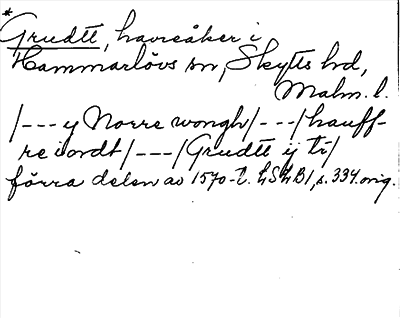 *
Grudtt, havreåker i
Hammarlövs sn, Skytts hd,
Malm. l.
/---y Norre wongh/---/hauff-
re iordt/---/Grudtt ij tr/
förra delen av 1570-t. LSLB1, s. 334. orig.